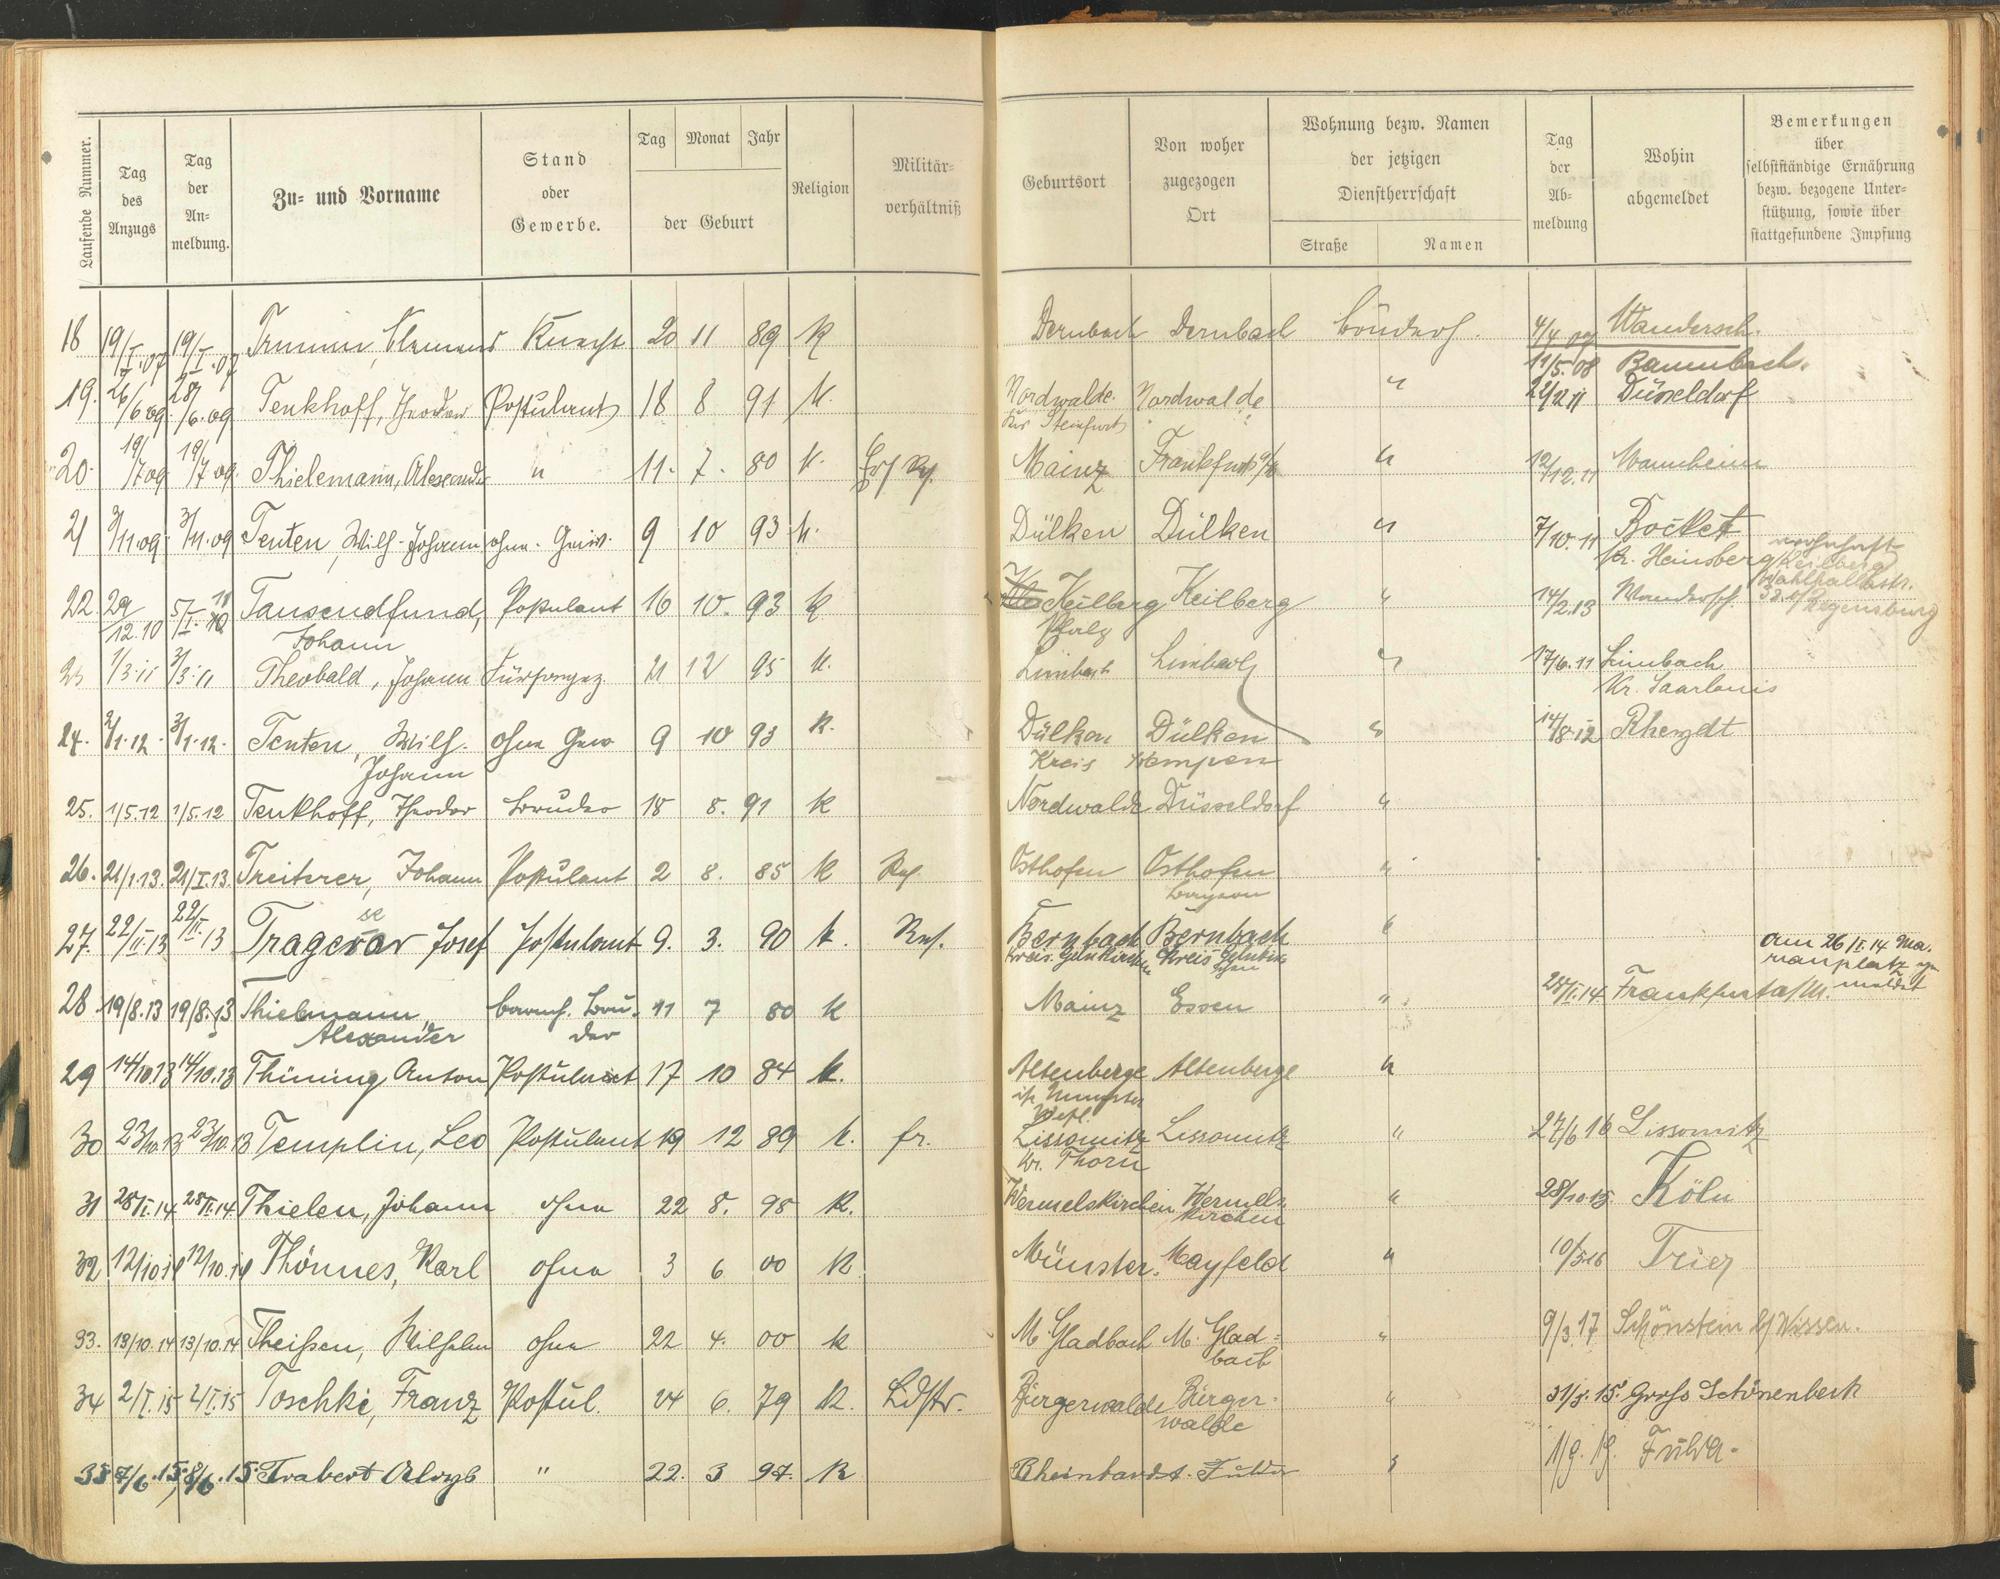 Laufende Nummer.
Tag des Anzugs
Tag der An-meldung.
Zu- und Vorname
Stand oder Gewerbe.
Tag Monat Jahr
der Geburt
Religion
Militär-verhältniß
Geburtsort
Von woher zugezogen Ort
Wohnung bezw. Namen
der jetzigen
Dienstherrschaft
Straße Namen
Tag der Ab-meldung
Wohin abgemeldet
Bemerkungen
über
selbstständige Ernährung
bezw. bezogene Unter-
stützung, sowie über
stattgefundene Impfung
18 19/I.07 19/I.07 Clemens Knecht 20 11 89 K Dernbach Dernbach 4/4 09 Wandersch.
11/5.08 Baumbach.
19. 26/6 09. 28/6.09 Tenkhoff, Theodor Postulant 18 8 91 K. Nordwalde. Nordwalde " 22/12 11 Düsseldorf
Kr. Steinfurt
20. 19/7 09 19/7 09. Thielemann, Alexander " 11. 7. 80 K. Mainz Frankfurt a/M " 12/12.11 Mannheim
21 3/11.09. 3/11.09 Tenten, Wilh. Johann ohne Gew. 9 10 93 K. Dülken Dülken " 7/10.11 Bocket
Kr. Heinsberg
22. 29/12.10 5/I. 11 Tausendfund, Postulant 16 10. 93 K Keilberg Keilberg " 14/2.13 Wandersch. wohnhaft Keilberg Walhallastr. Regensburg
Johann Pfalz
23 1/3.11 3/3.11 Theobald, Johann Fürsorgez. 21 12 95 K. Limbach Limbach " 17/6.11 Limbach
Kr. Saarlouis
24. 2/1.12. 3/1.12. Tenten, Wilh. ohne Gew 9 10 93 K. Dülken Dülken " 14/8.12 Rheydt
Johann Kreis Kempen
25. 1/5.12 1/5.12 Tenkhoff, Theodor Bruder 18 8. 91 K Nordwalde Düsseldorf "
26. 21/1.13. 21/I.13. Treiterer, Johann Postulant 2 8. 85 K Res. Osthofen Osthofen "
Bayern
27. 22/II.13 22/II.13 Josef Postulant 9. 3. 90 K. Res. Bernbach Bernbach "
Kreis Gelnhausen Kreis
am 26/I.14
28 19/8.13 19/8.13 Thielmann, Bru- 11 7 80 K Mainz Essen " 28/I.14 Frankfurt a/M.
Alexander der
29 14/10.13 14/10.13 Thiming, Anton Postulant 17 10 84 K. Altenberge Altenberge "
Münster
Westf.
30 23/10.13 23/10.13 Templin, Leo Postulant 19 12 89 K. fr. Lissomitz Lissomitz " 27/6 16 Lissomitz
Kr. Thorn
31 28/I.14 28/II.14 Thielen, Johann ohne 22 8. 98 K. Wermelskirchen Wermels- " 28/10.15. Köln
kirchen
32 12/10.14 12/10.14 Thönnes, Karl ohne 3 6 00 K. Münster. Mayfeld " 10/5.16 Trier
33. 13/10.14 13/10.14 Theißen, Wilhelm ohne 22 4. 00 K M. Gladbach M. Glad- " 9/3.17 Schönstein b/ Wissen.
bach
34 2/I.15 2/I.15 Toschki, Franz Postul. 24 6. 79 K. Ldstr. Bürgerwalde Bürger- " Groß Schönenbeck
walde
35 7/6.15. 8/6.15. Trabert Aloys " 22. 3 97. K Fulda " 1/9.19. Fulda.